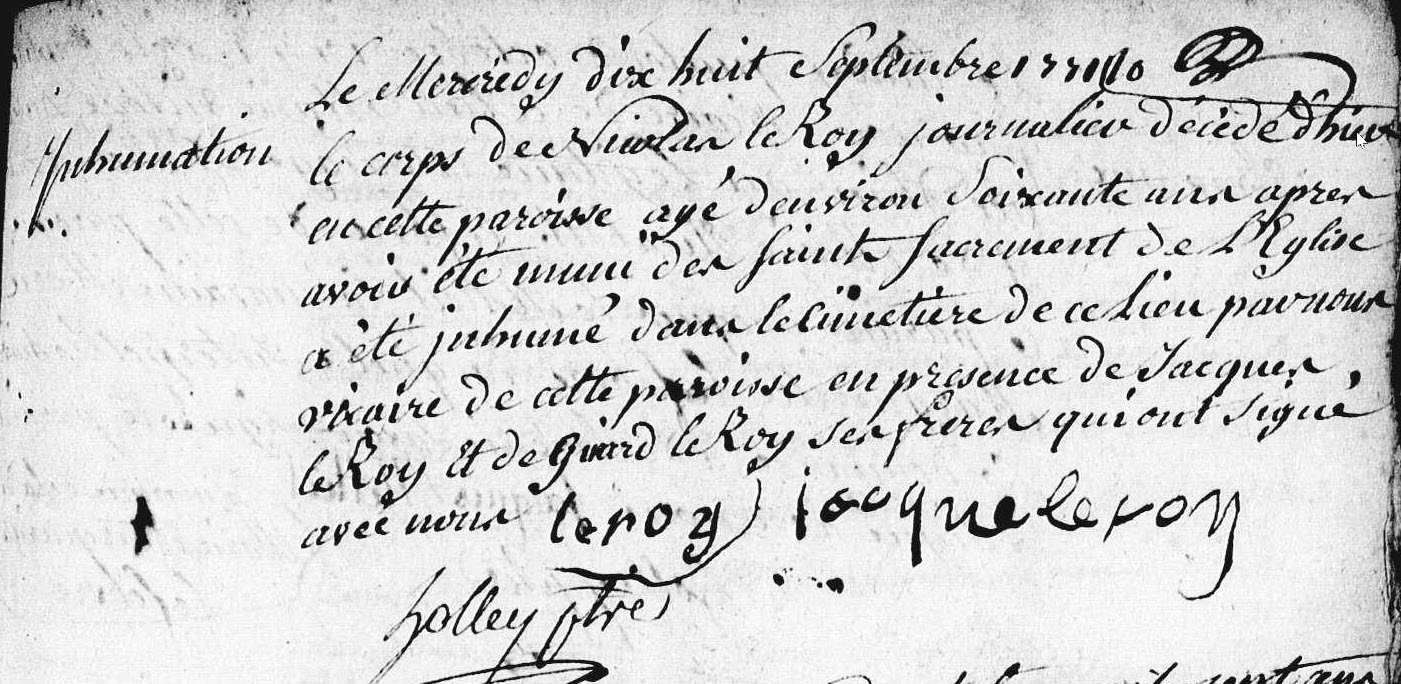 Le Mercredy dix huit Septembre
Inhumation
le corps de Nicolas le Roy journalier décédé d'hier
en cette paroisse agé d'environ Soixante ans apres
avoir été muni des saints sacrement de L'Eglise
a été inhumé dans le Cimetiere de ce Lieu par nous
vicaire de cette paroisse en presence de Jacques
le Roy et de Girard le Roy ses freres qui ont signé
avec nous leroy jacque leroy
ptre